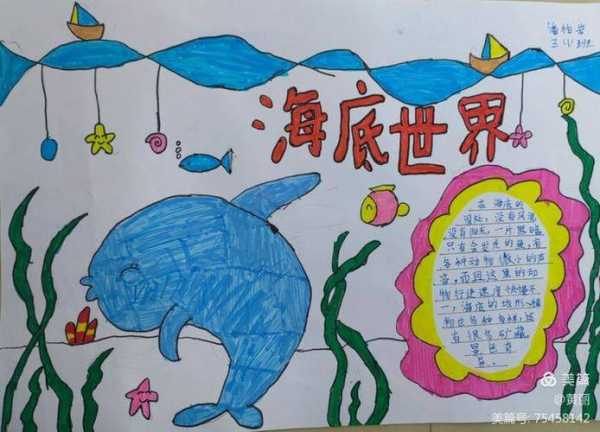 潘柏安
三(1)班
海底世界
在海底的
深处，没有风浪
没有阳光，一片黑暗
只有会发光的鱼，有
各种动物微小的声
音，而且这里的动
物行走速度快慢不
一，海底的地形、植
物也各种各样，还
有很多矿藏
景色奇
异。
美篇
@黄丽
美篇号：75458142